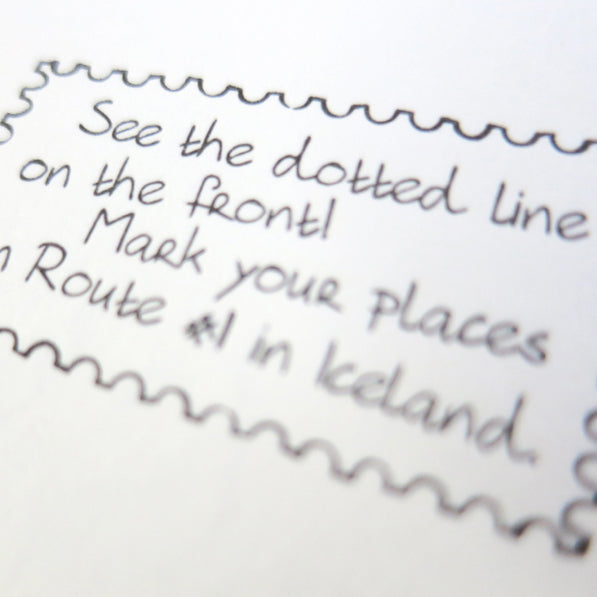 See the dotted line
on the front!
Mark your places
n Route #1 in Iceland.